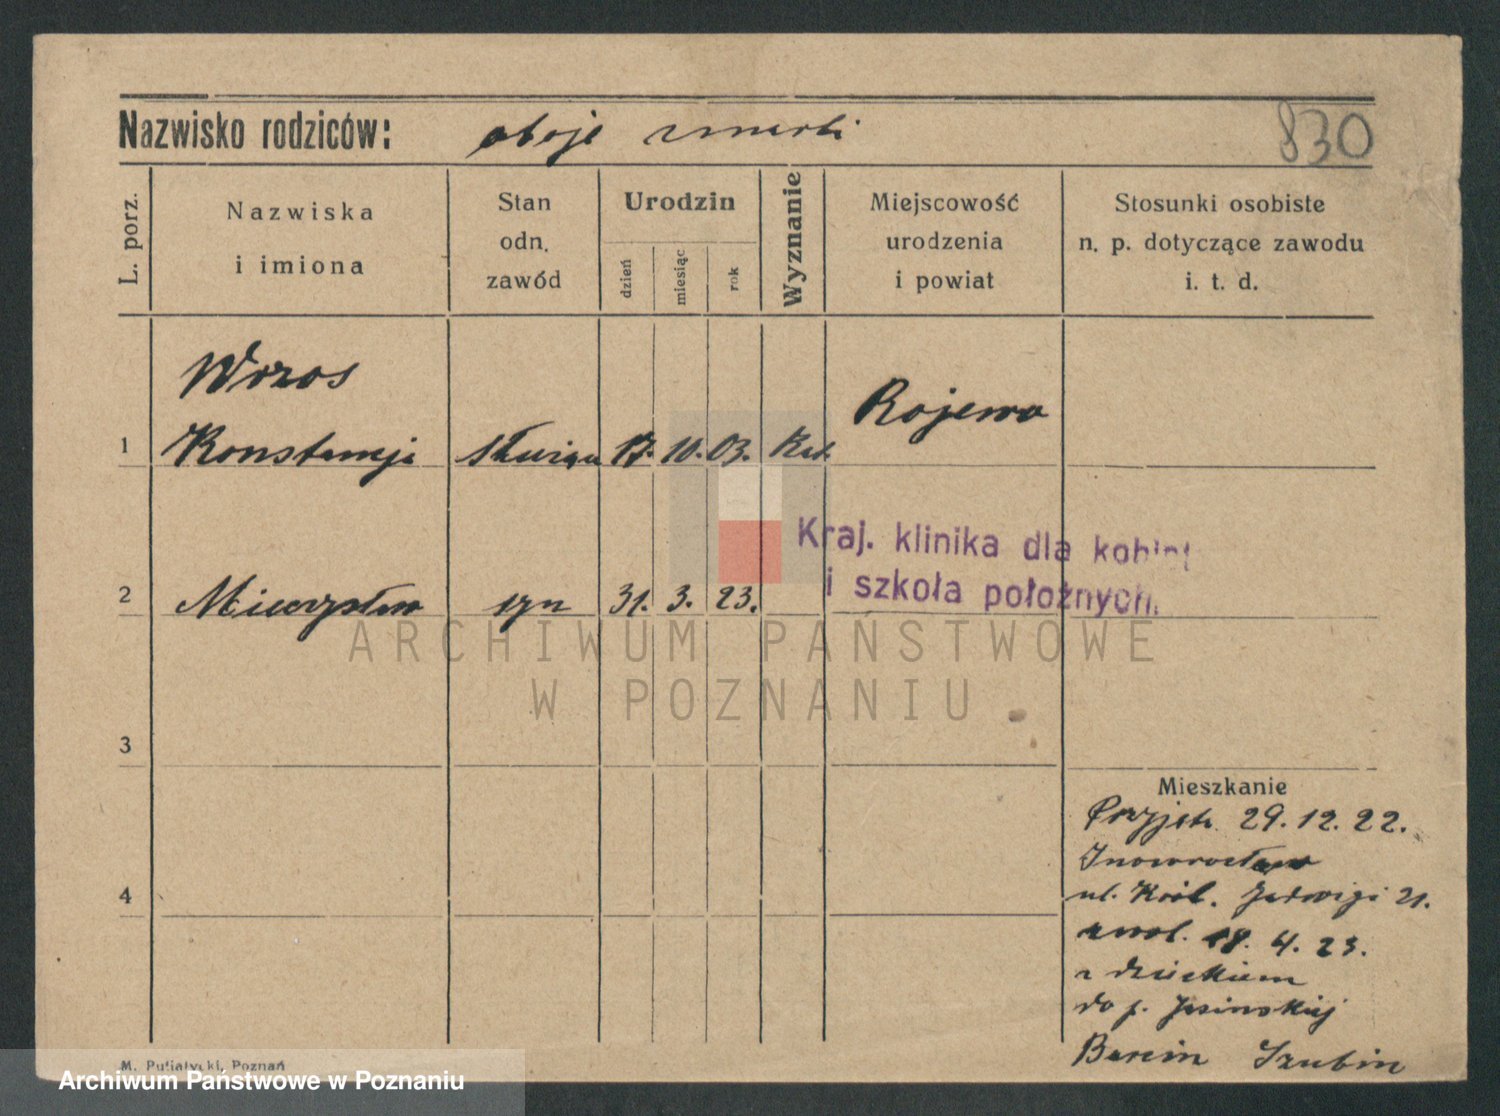 Nazwisko rodziców: oboje zmarli 830
L. porz.
Nazwiska
i imiona
Stan
odn.
zawód
Urodzin
dzień
miesiąc
rok
Wyznanie
Miejscowość
urodzenia
i powiat
Stosunki osobiste
n. p. dotyczące zawodu
i. t. d.
Wrzos
Rojewo
1 Konstancja służąca 17. 10. 03. Kat.
Kraj. klinika dla kobiet
i szkoła położnych.
2 Mieczysław syn 31. 3. 23.
ARCHIWUM PAŃSTWOWE
W POZNANIU
3
4
Mieszkanie
Przyjęta 29.12.22.
Inowrocław
ul. Król. Jadwigi 21.
zwol. 4. 23.
z dzieckiem
do p. Jasinskiej
Barcin Szubin
M. Putiatycki, Poznań
Archiwum Państwowe w Poznaniu